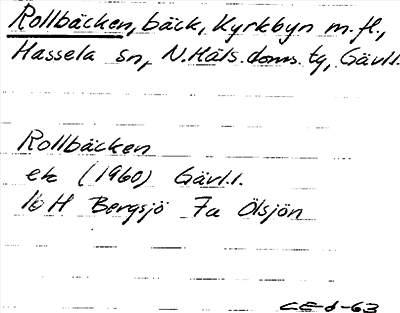 Rollbäcken, bäck, Kyrkbyn m.fl.,
Hassela sn, N.Häls.doms.tg, Gävl.l.
Rollbäcken
ek (1960) Gävl.l.
16 H Bergsjö 7a Ölsjön
CE d-63